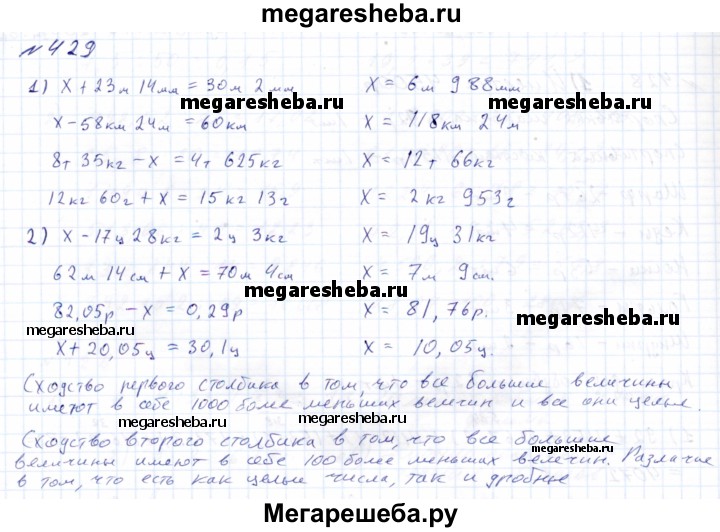 megaresheba.ru
№429
1) x + 23м 14мм = 30м 2мм   x = 6м 988мм
megaresheba.ru megaresheba.ru
x - 58км 24м = 60км   x = 118км 24м
8т 35кг - x = 4т 625кг   x = 12т 66кг
12кг 60г + x = 15кг 13г   x = 2кг 953г
2) x - 17ц 28кг = 2ц 3кг   x = 19ц 31кг
62м 14см + x = 70м 4см   x = 7м 9см.
megaresheba.ru
82,05р - x = 0,29р   x = 81,76р.
megaresheba.ru megaresheba.ru
x + 20,05ц = 30,1ц   x = 10,05ц.
Сходство первого столбика в том, что все большие величины
имеют в себе 1000 более меньших величин и все они целые.
megaresheba.ru megaresheba.ru
Сходство второго столбика в том, что все большие
величины имеют в себе 100 более меньших величин. Различие
в том, что есть как целые числа, так и дробные
Мегарешеба.ру